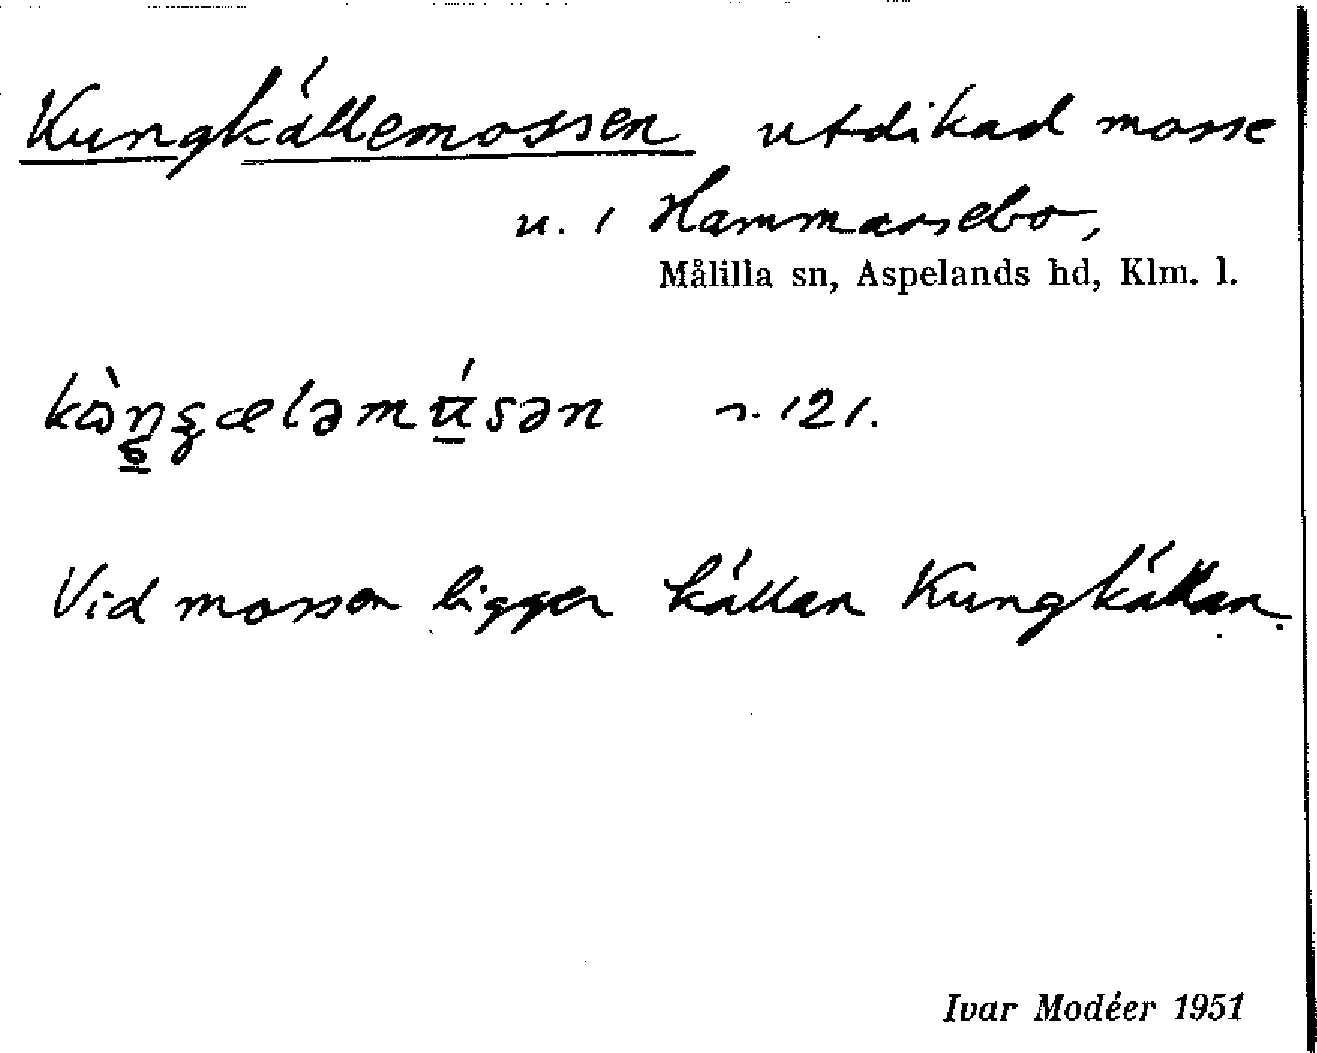 Kungkällemossen utdikad mosse
u. i Hammarsebo,
Målilla sn, Aspelands hd, Klm. l.
121.
Vid mossen ligger källan Kungkällan.
Ivar Modéer 1951